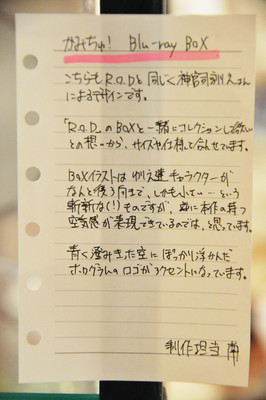 かみちゅ! Blu-ray BOX
こちらもR.O.Dと同じく神宮司訓之さん
によるデザインです。
「R.O.D」のBOXと一緒にコレクションして欲しい
との想いから、サイズや仕様も合わせています。
BOXイラストは ゆりえ達キャラクターが
なんと後ろ向きで、しかも小さい…という
斬新な(!)ものですが、逆に本作の持つ
空気感が表現できているのでは、と思っています。
青く澄みきった空に ぽっかり浮かんだ
ホログラムのロゴがアクセントになっています。
制作担当 南